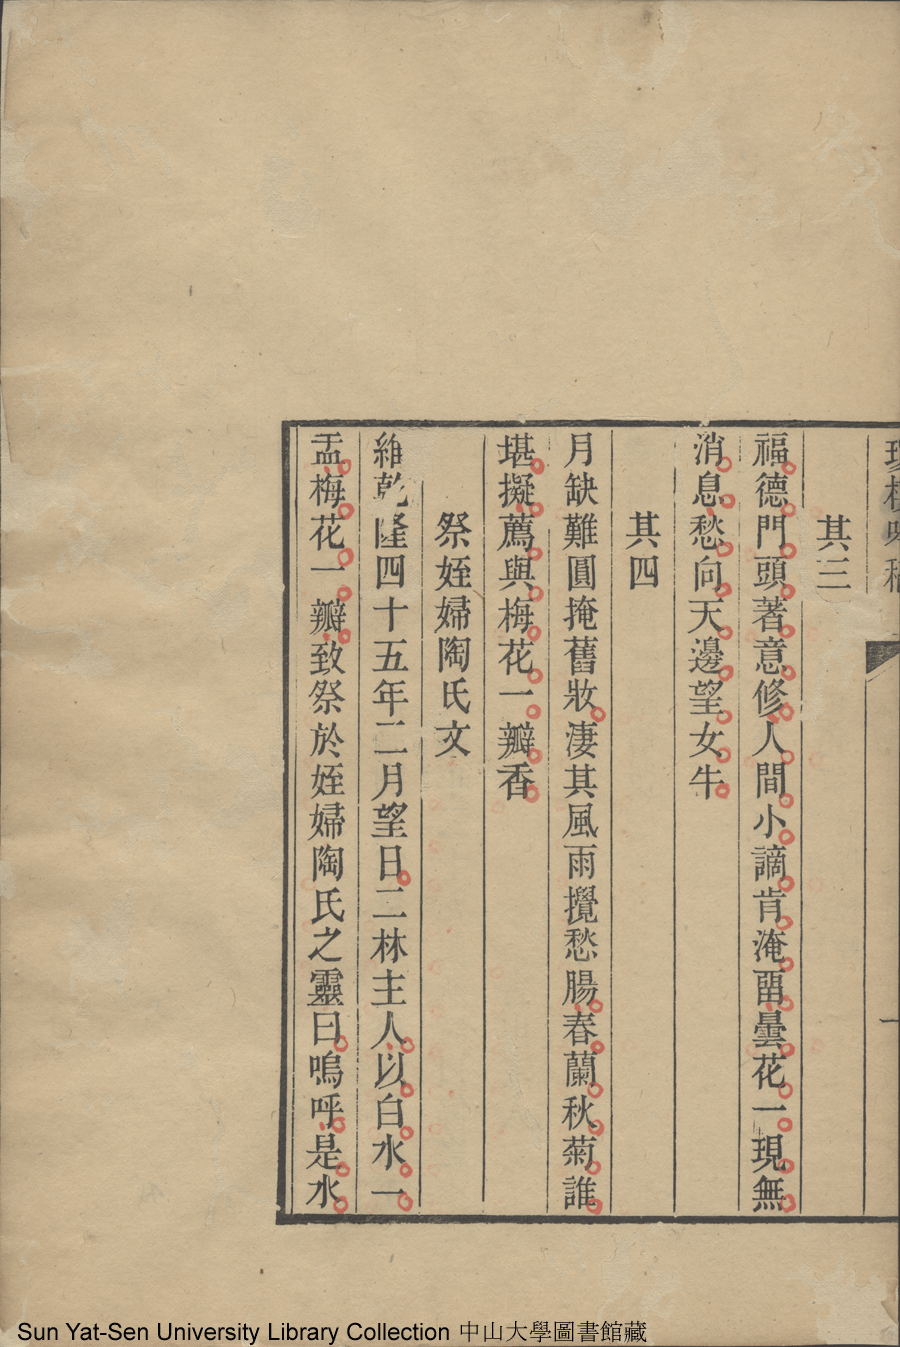 其三
福德門頭著意修人間小謫肯淹畱曇花一現無
消息愁向天邊望女牛
其四
月缺難圓掩舊妝淒其風雨攪愁腸春蘭秋菊誰
堪擬薦與梅花一瓣香
祭姪婦陶氏文
維乾隆四十五年二月望日二林主人以白水一
盂梅花一瓣致祭於姪婦陶氏之靈曰嗚呼是水
Sun Yat-Sen University Library Collection 中山大學圖書館藏